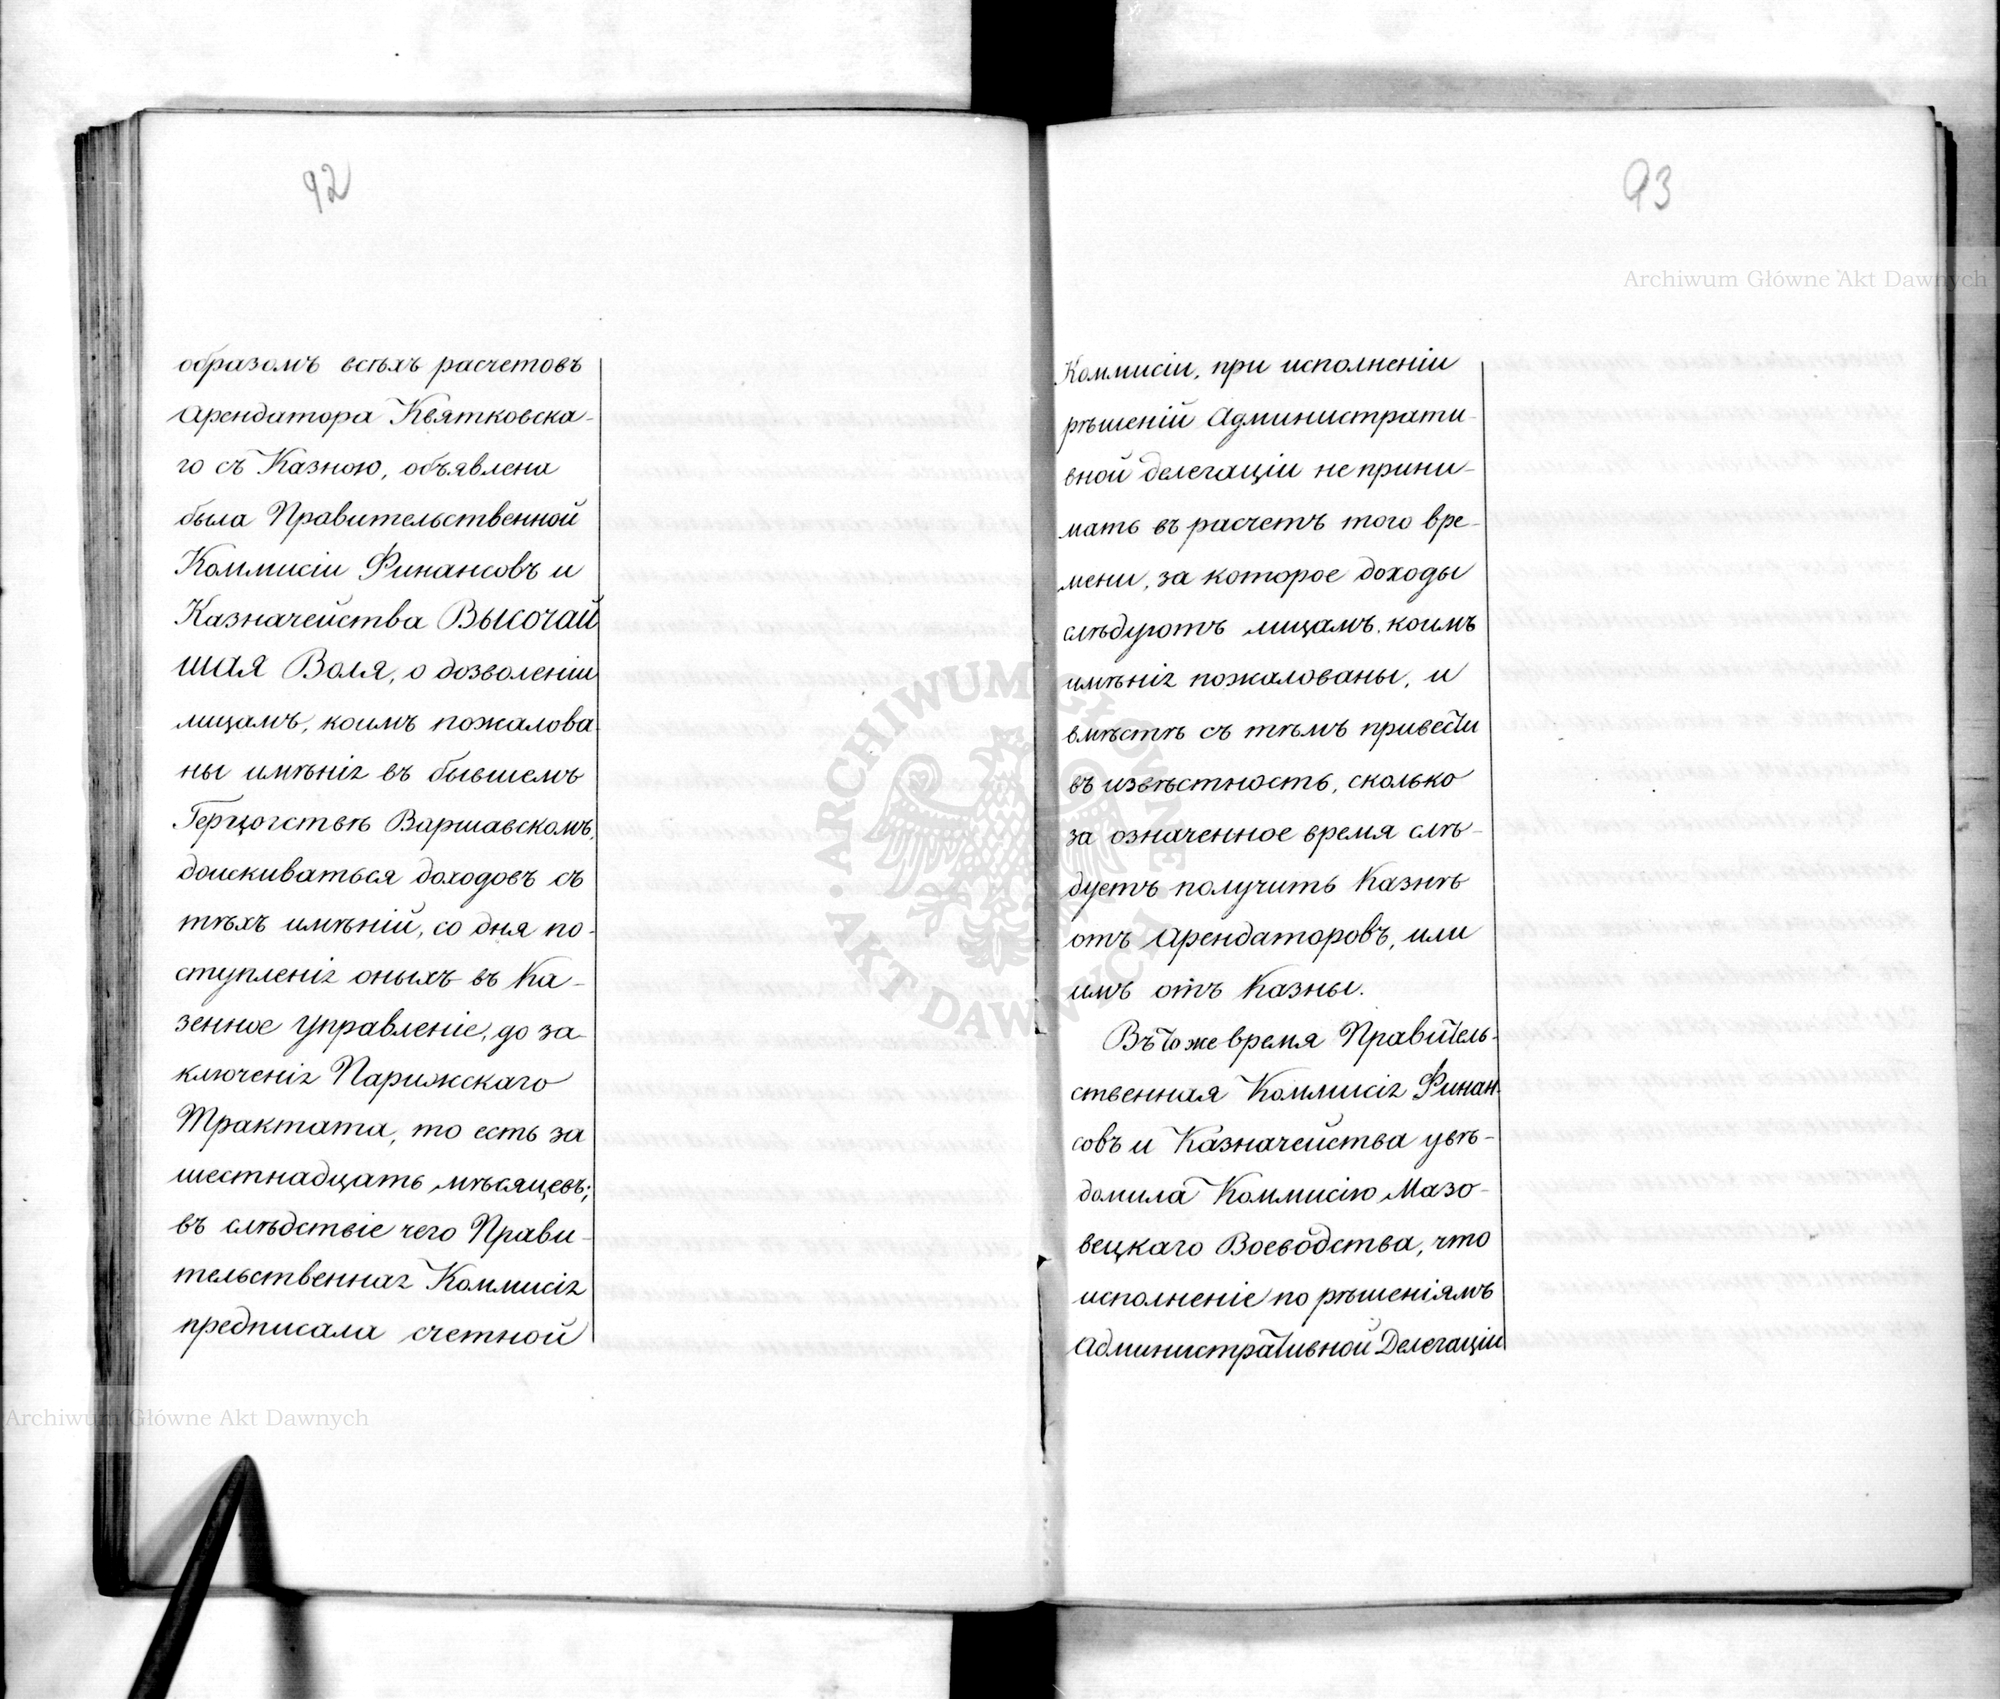 92
образомъ всѣхъ расчетовъ
Арендатора Квятковска-
го съ Казною, объявлена
была Правительственной
Коммисіи Финансовъ и
Казначейства Высочай
шая Воля, о дозволеніи
лицамъ, коимъ пожалова
ны имѣнія въ бывшемъ
Герцогствѣ Варшавскомъ,
доискиваться доходовъ съ
тѣхъ имѣній, со дня по-
ступленія оныхъ въ Ка-
зенное Управленіе, до за-
ключенія Парижскаго
Трактата, то есть за
шестнадцать мѣсяцевъ;
въ слѣдствіе чего Прави-
тельственная Коммисія
предписала счетной
93
Коммисіи, при исполненіи
рѣшеній Администрати-
вной делегаціи не прини-
мать въ расчетъ того вре-
мени, за которое доходы
слѣдуютъ лицамъ, коимъ
имѣнія пожалованы, и
вмѣстѣ съ тѣмъ привести
въ извѣстность, сколько
за означенное время слѣ-
дуетъ получить Казнѣ
отъ Арендаторовъ, или
имъ отъ Казны.
Въ тоже время Правитель-
ственная Коммисія Финан-
совъ и Казначейства увѣ-
домила Коммисію Мазо-
вецкаго Воеводства, что
исполненіе по рѣшеніямъ
Административной Делегаціи
Archiwum Główne Akt Dawnych
ARCHIWUM GŁÓWNE AKT DAWNYCH
Archiwum Główne Akt Dawnych